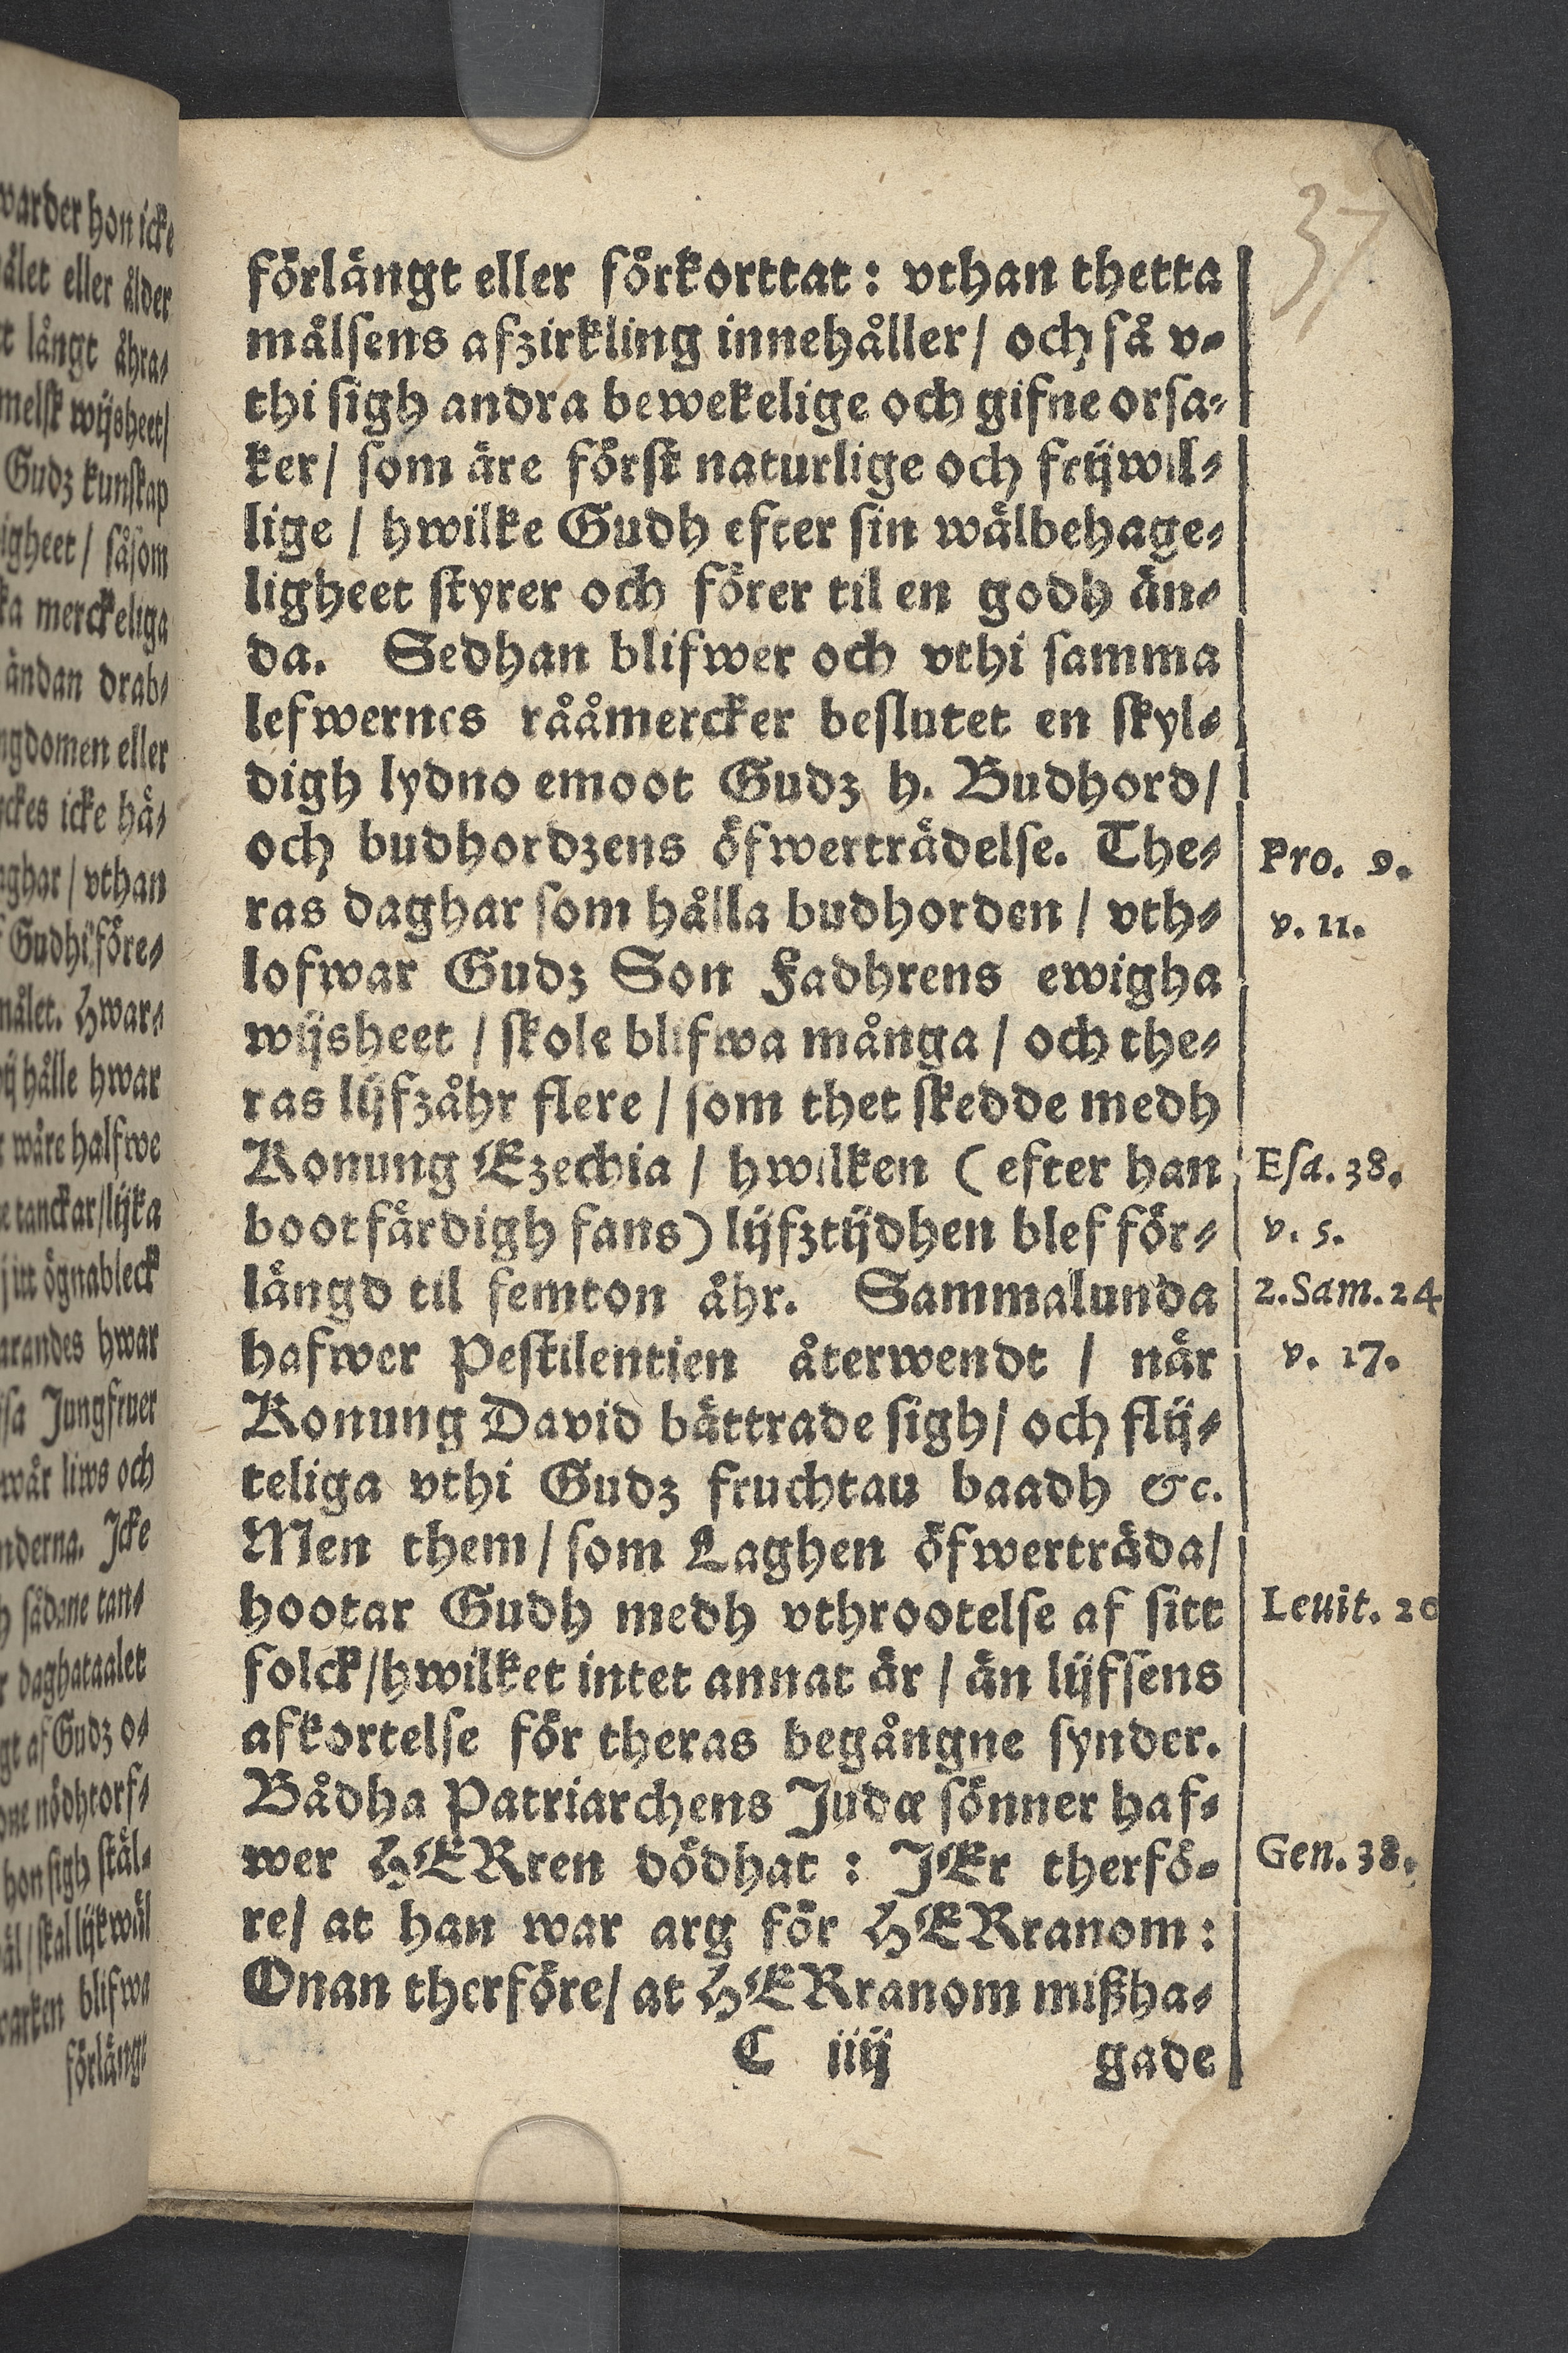 37
förlängt eller förkorttat: vthan thetta
målsens afzirkling innehåller/ och så v-
thi sigh andra bewekelige och gifne orsa-
ker/ som äre först naturlige och frijwil-
lige / hwilke Gudh efter sin wälbehage-
ligheet styrer och förer til en godh än-
da. Sedhan blifwer och vthi samma
lefwernes rååmercker beslutet en skyl-
digh lydno emoot Gudz h. Budhord/
och budhordzens öfwerträdelse. The-
Pro. 9.
ras daghar som hålla budhorden / vth-
v. 11.
lofwar Gudz Son Fadhrens ewigha
wijsheet / skole blifwa många / och the-
ras lijfzåhr flere / som thet skedde medh
Konung Ezechia / hwilken (efter han
Esa. 38.
bootfärdigh fans) lijfztijdhen blef för-
v. 5.
längd til femton åhr. Sammalunda
2. Sam. 24
hafwer Pestilentien återwendt / når
v. 17.
Konung David bättrade sigh/ och flij-
teliga vthi Gudz fruchtan baadh &c.
Men them / som Laghen öfwerträda/
hootar Gudh medh vthrootelse af sitt
Leuit. 20
folck/hwilket intet annat är / än lijfsens
afkortelse för theras begångne synder.
Bådha Patriarchens Judæ sönner haf-
wer HERren dödhat : JEr therfö-
Gen. 38.
re/ at han war arg för HERranom:
Onan therföre/ at HERranom mißha-
C iiij gade
warder hon icke
ålet eller ålder
långt åhra-
melsk wijsheet/
Gudz kunskap
igheet / såsom
merckeliga
ändan drab-
ngdomen eller
ckes icke hå-
aghar / vthan
Gudhi före-
målet. Hwar-
hålle hwar
wåre halfwe
tanckar/lijka
itt ögnableck
arandes hwar
Jungfruer
wår liws och
nderna. Icke
sådane tan-
daghataalet
gt af Gudz o-
nödhtorf-
hon sigh stäl-
skal lijkwäl
warken blifwa
förlängt